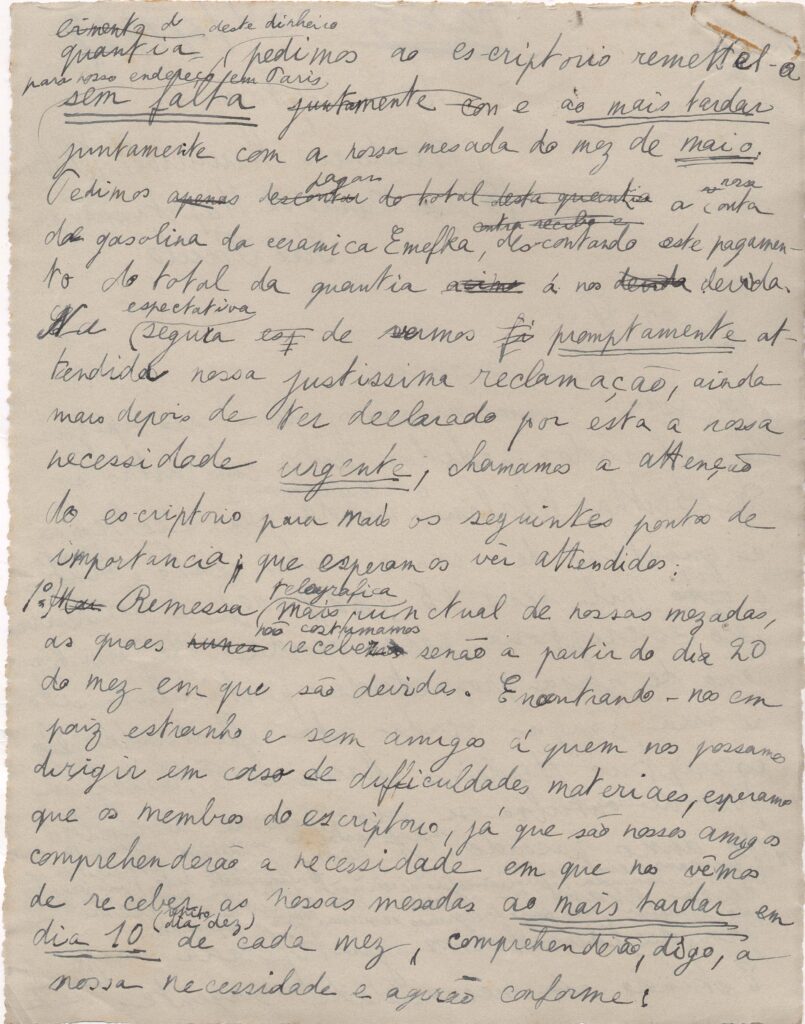 cimento d deste dinheiro
quantia, pedimos ao escriptorio remettel-a
para nosso endereço em Paris
sem falta juntamente con e ao mais tardar
juntamente com a nossa mesada do mez de maio.
pagar nossa
Pedimos apenas descontar do total desta quantia a conta
contra recibo e
da gasolina da ceramica Emefka, descontando este pagamen-
to do total da quantia acima á nos devida devida.
espectativa
Na segura es de vermos promptamente at-
tendida nossa justissima reclamação, ainda
mais depois de ter declarado por ésta a nossa
necessidade urgente, chamamos a attenção
do escriptorio para mais os seguintes pontos de
importancia, que esperamos vêr attendidos:
telegrafica
1º) Remessa mais punctual de nossas mezadas,
não costumamos
as quaes nunca receber senão a partir do dia 20
do mez em que são devidas. Encontrando-nos em
paiz estranho e sem amigos á quem nos possamos
dirigir em caso de difficuldades materiaes, esperamos
que os membros do escriptorio, já que são nossos amigos
comprehenderão a necessidade em que nos vêmos
de receber as nossas mesadas ao mais tardar em
(dia dez)
dia 10 de cada mez, comprehenderão, digo, a
nossa necessidade e agirão conforme!